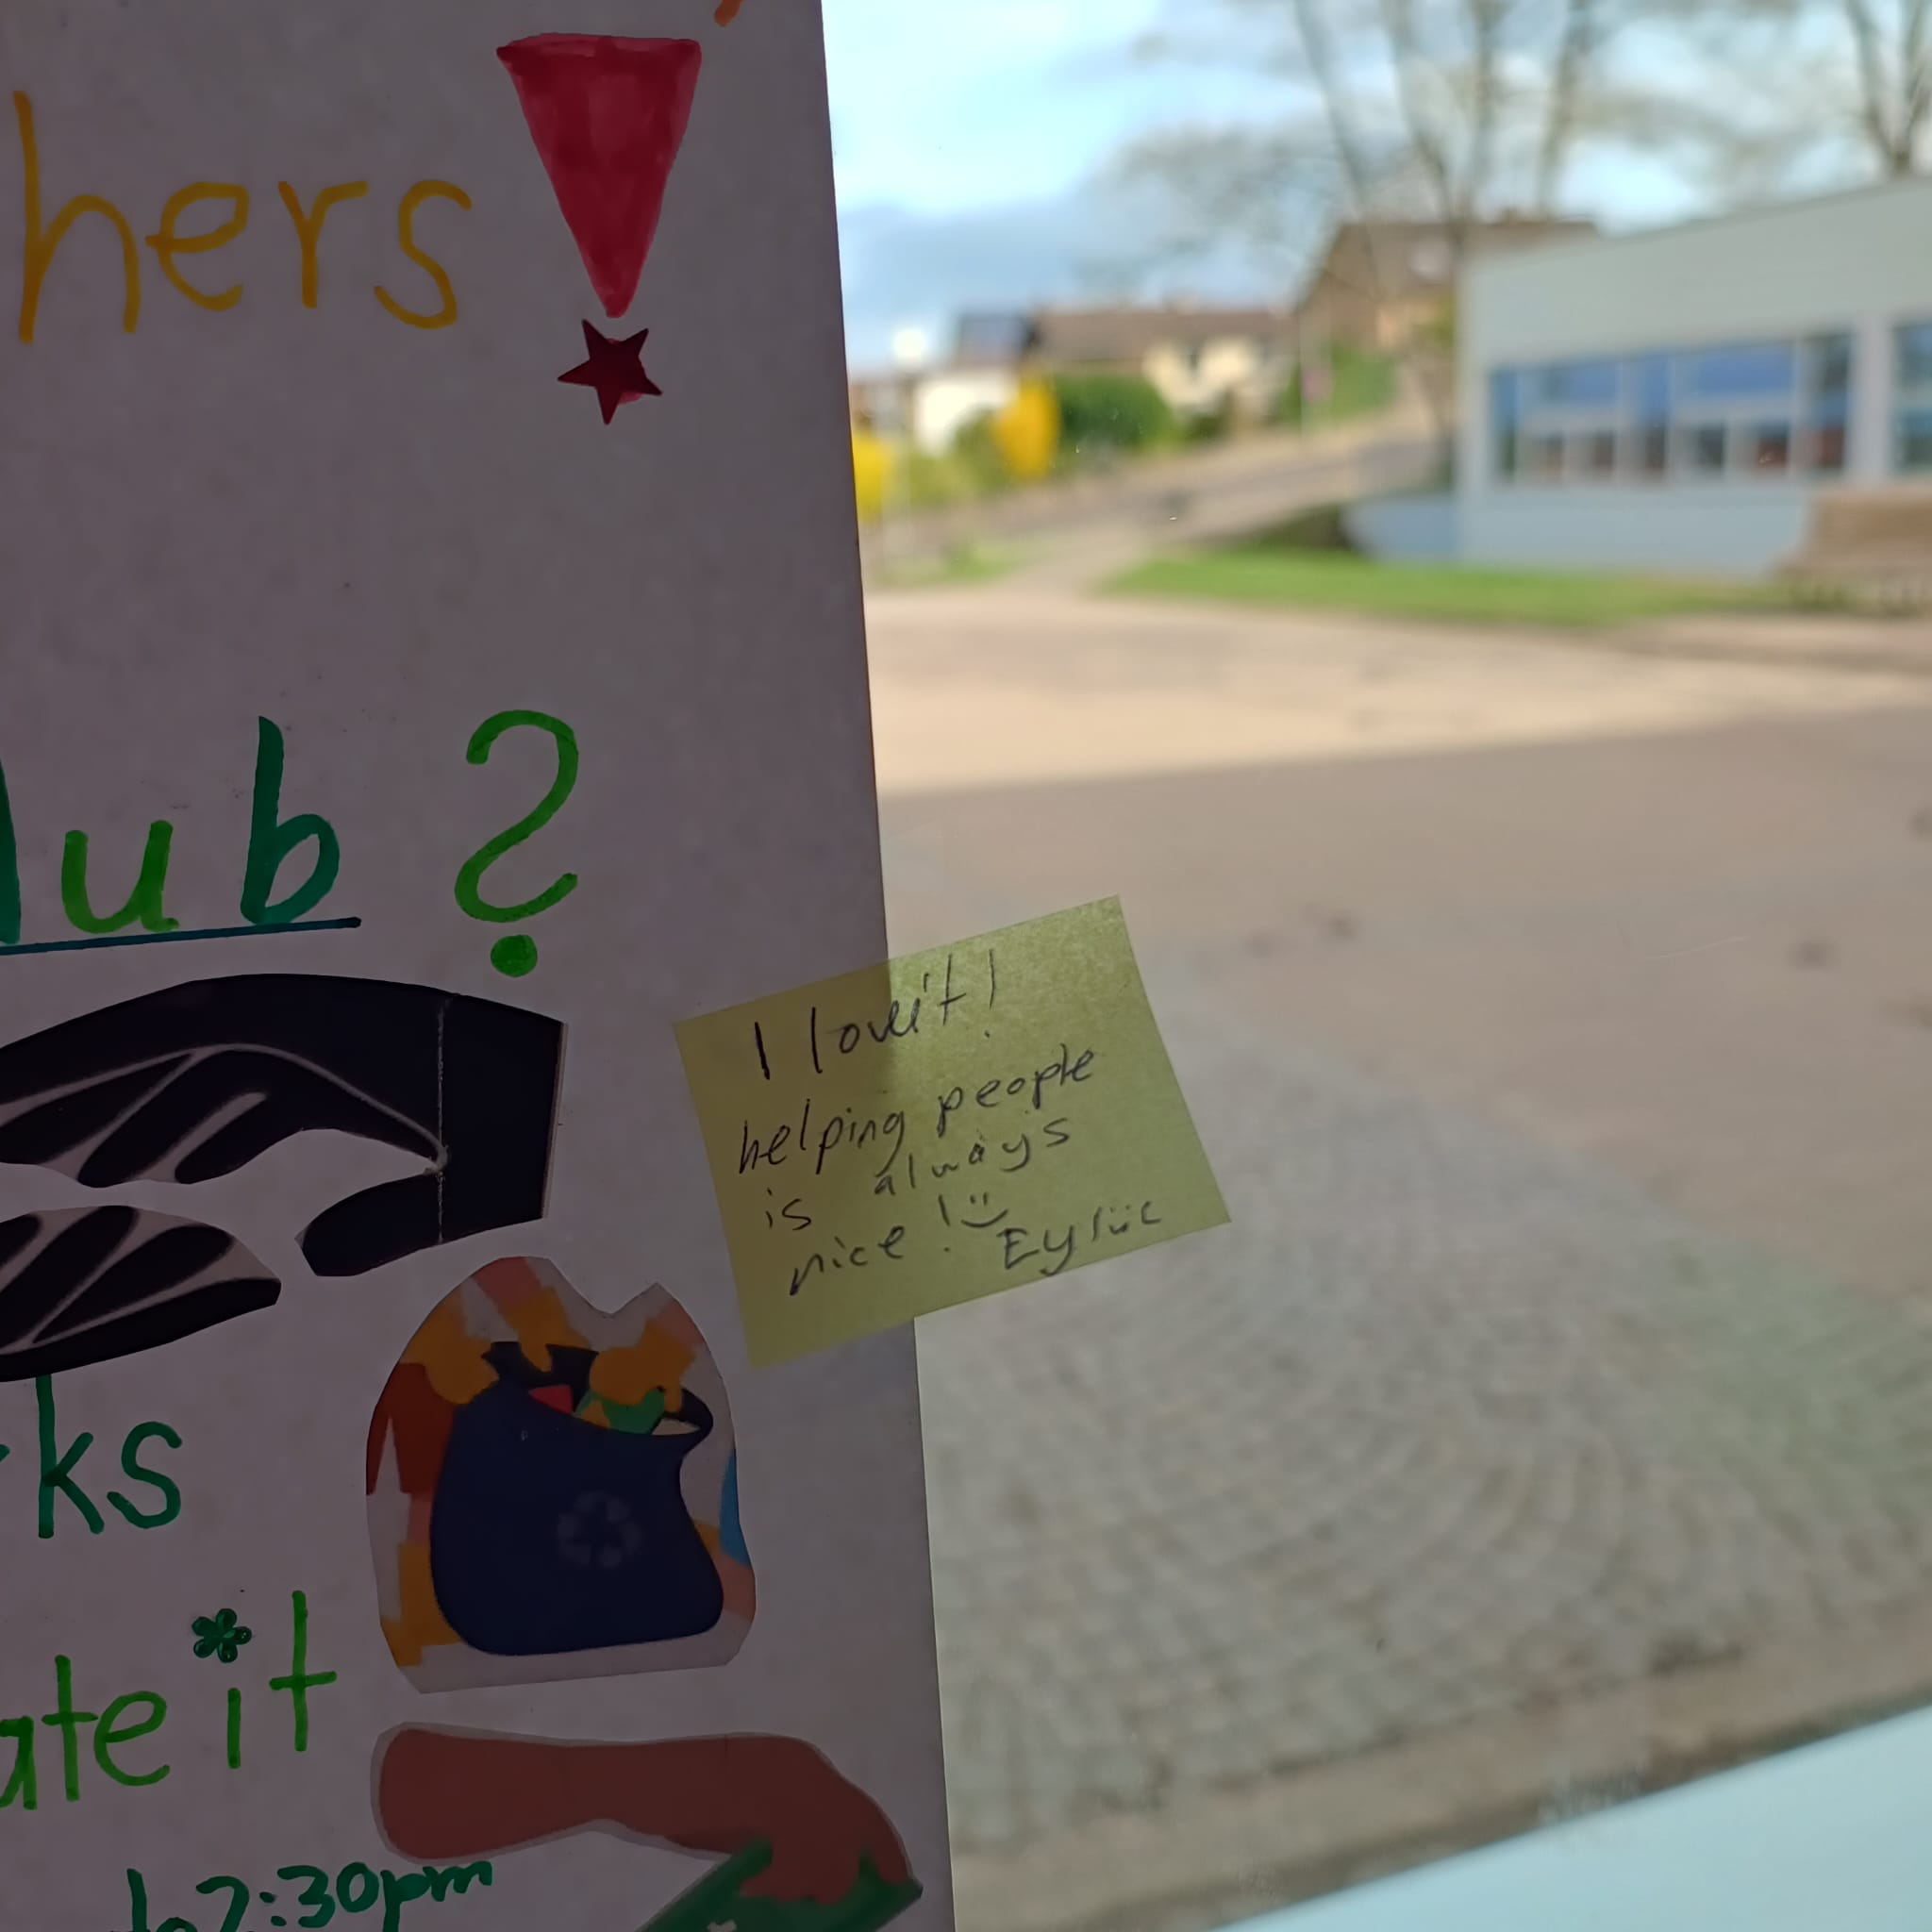 hers!
lub ?
I love it!
helping people
is always
nice! Eylül
ks
ate it
to 2:30pm